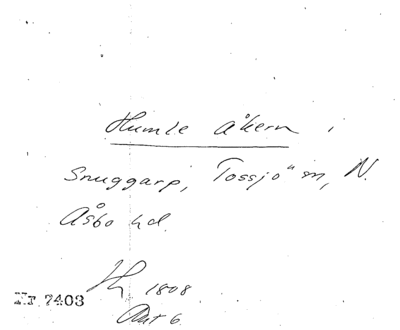 Humle åkern i
Snuggarp, Tossjö sn, N.
Åsbo hd.
1808
Nr 7403
Akt 6